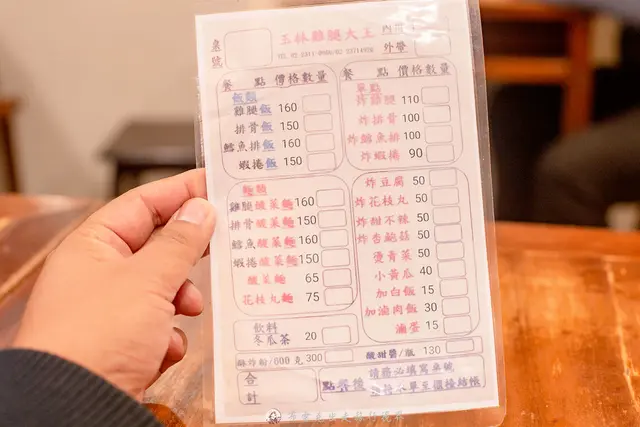 桌號
玉林雞腿大王
內用
外帶
餐點 價格 數量
飯類
雞腿飯 160
排骨飯 150
鱈魚飯 160
蝦捲飯 150
餐點 價格 數量
單點
炸雞腿 110
炸排骨 100
炸鱈魚排 100
炸蝦捲 90
麵類
雞腿酸菜麵 160
排骨酸菜麵 150
鱈魚酸菜麵 160
蝦捲酸菜麵 150
酸菜麵 65
花枝丸麵 75
炸豆腐 50
炸花枝丸 50
炸甜不辣 50
炸杏鮑菇 50
燙青菜 50
小黃瓜 40
加白飯 15
加滷肉飯 30
滷蛋 15
飲料
冬瓜茶 20
酥炸粉/600克 300
酸甜醬/瓶 130
合計
點餐後
請務必填寫桌號
單至櫃檯結帳